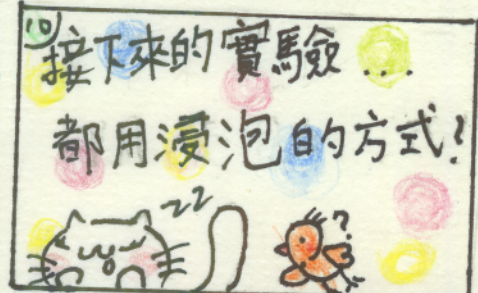 (10)
接下來的實驗...
都用浸泡的方式!
zz
?